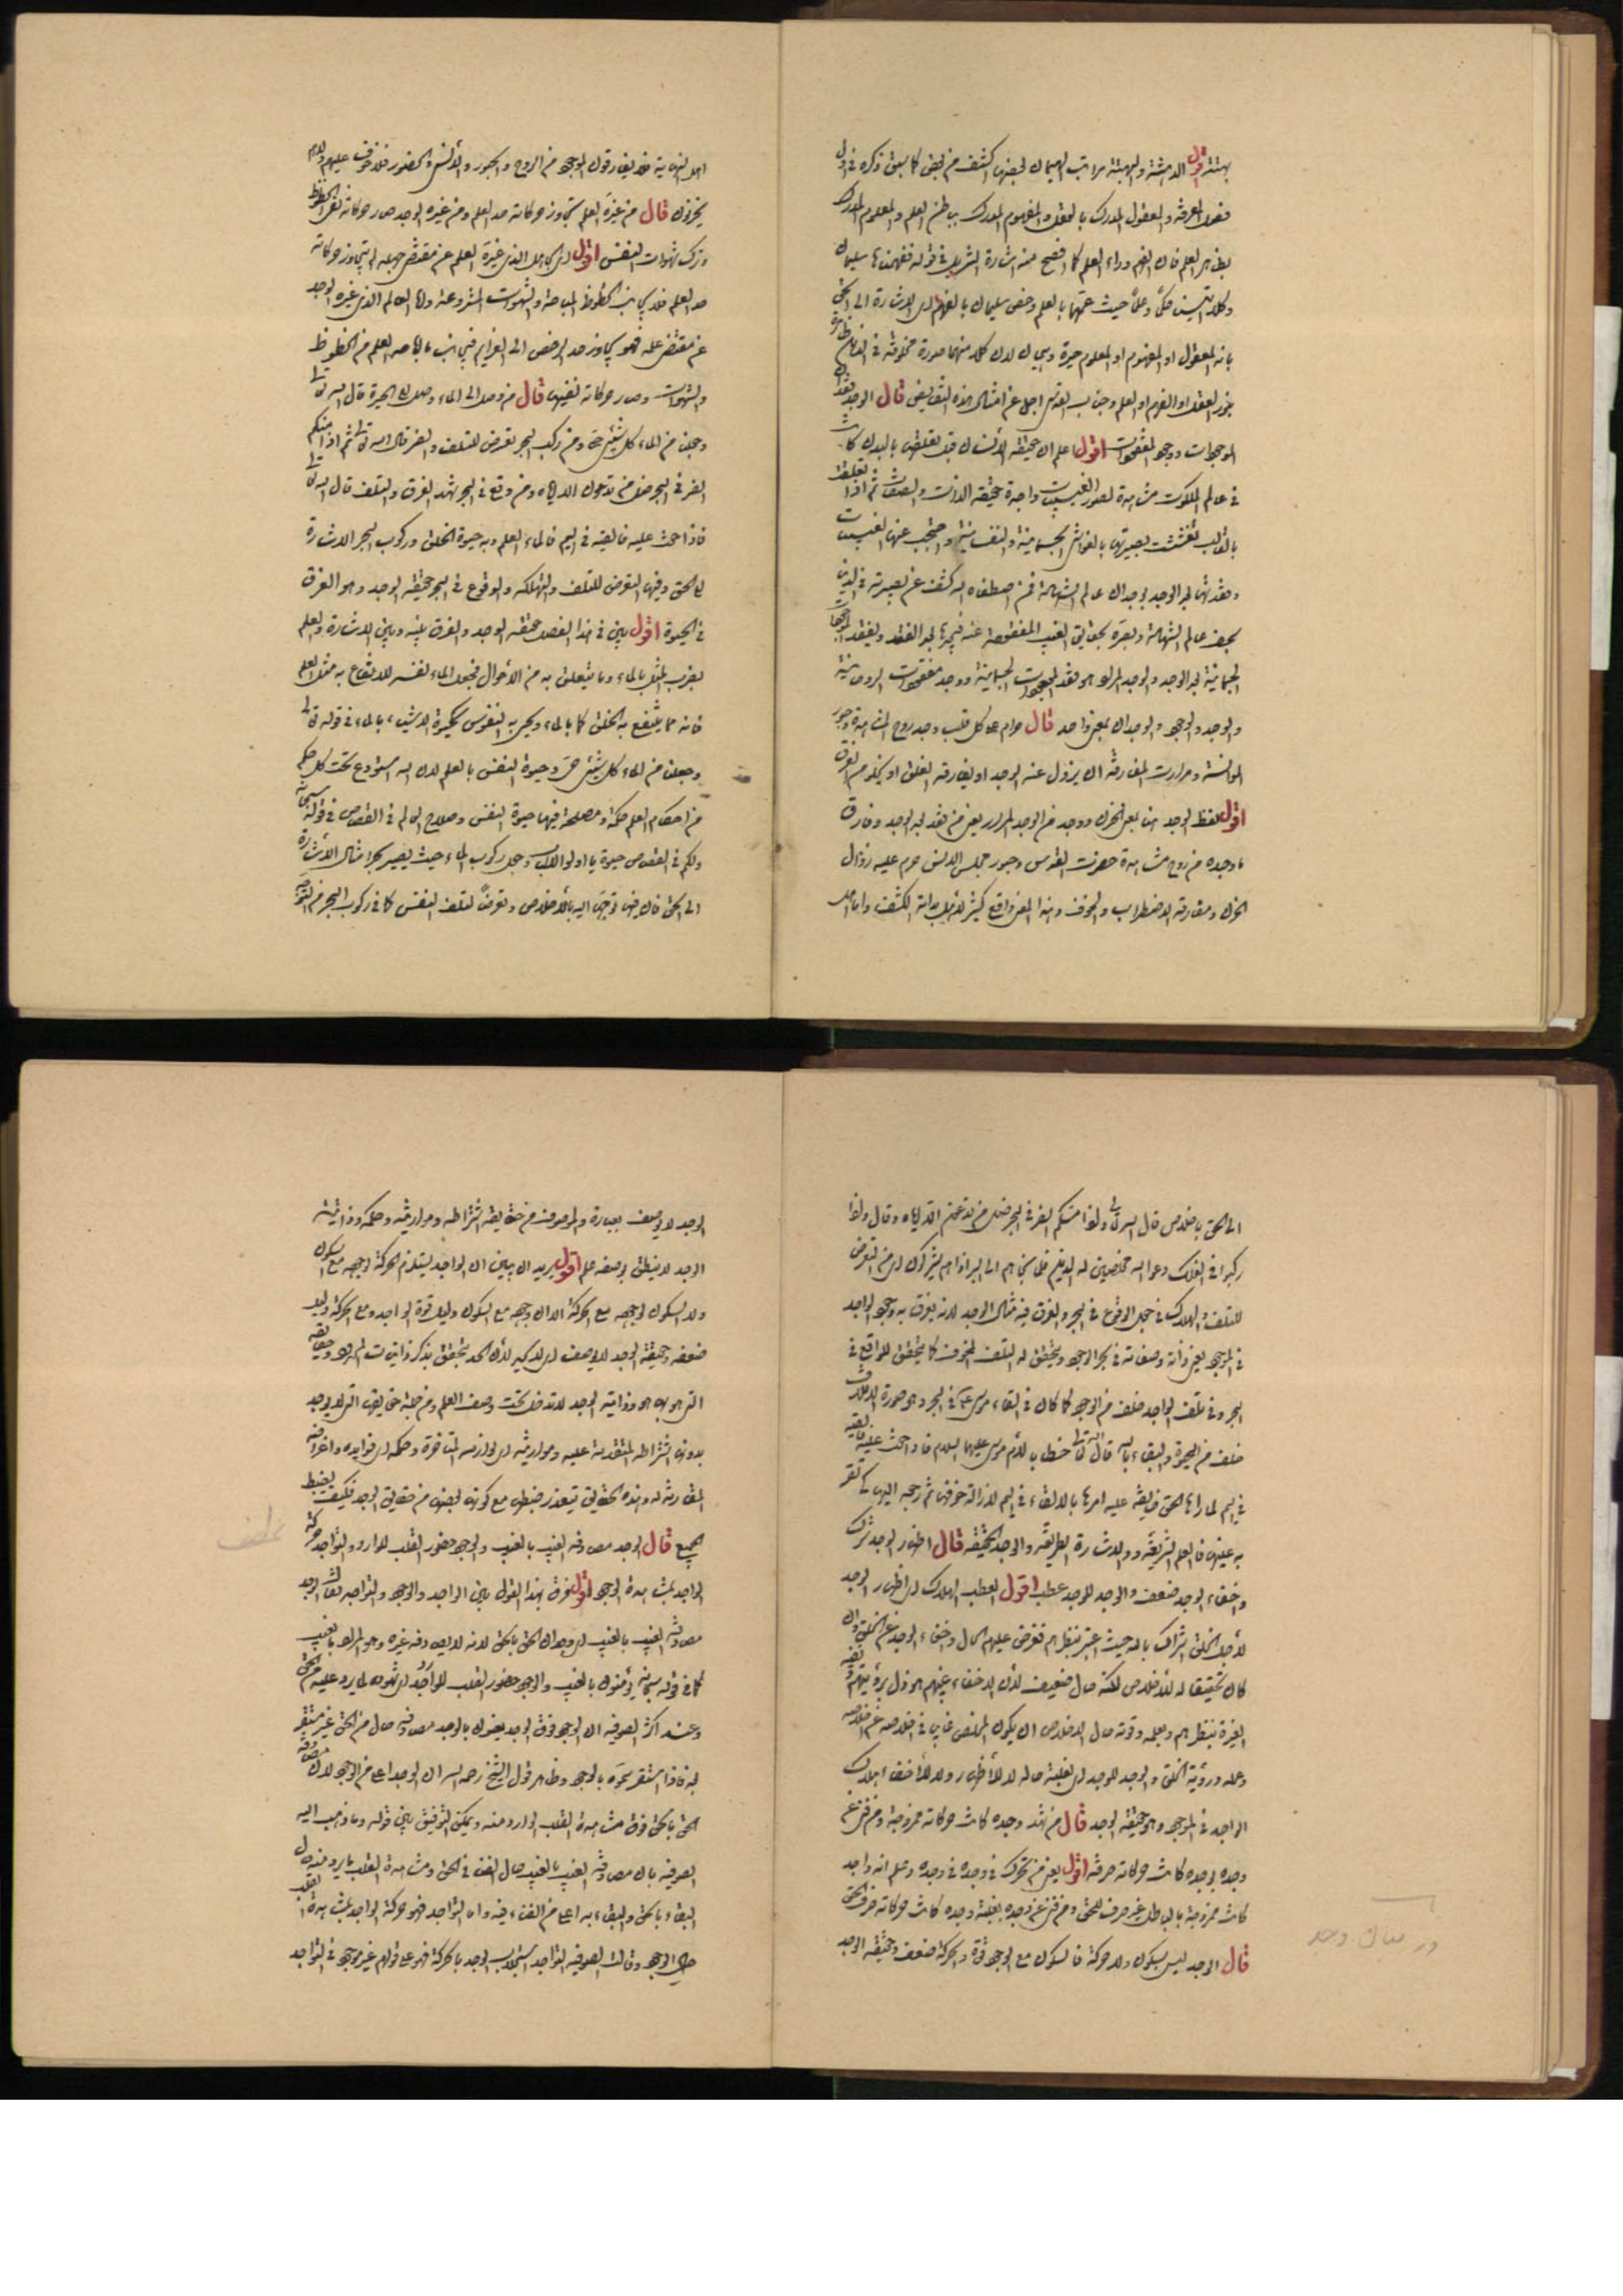 بهتة اقول الدهشة والبهتة مراتب الهيمان بعضها اكشف من بعض كما سبق ذكره في اول
فصل المعرفة والمعقول المدرك بالعقل والمفهوم المدرك بباطن العلم والمعلوم المدرك
بظاهر العلم فان الفهم وراء العلم كما افصح عنه اشارة التنزيل في قوله ففهمناها سليمان
وكلا آتينا حكما وعلما حيث عمهما بالعلم وخص سليمان بالفهم اي الاشارة الى الحق
بانه المعقول او المفهوم او المعلوم حيرة وهيمان لان كلا منها صورة مخلوقة في الذهن
بنور العقل او الفهم او العلم وجناب القدس اجل عن امثال هذه النقايص قال الوجد فقد
الموجودات ووجود المفقودات اقول اعلم ان حقيقة الانسان قبل تعلقها بالبدن كانت
في عالم الملكوت مشاهدة لصور الغيبيات واجدة حقيقة الذات والصفات ثم اذا تعلقت
بالقالب تغشت بصيرتها بالغواشي الجسمانية والنفسانية واحتجب عنها الغيبيات
وفقدتها بعد الوجد بوجدان عالم الشهادة فمن اصطفاه الله كشف عن بصيرته
الجسمانية بعد الوجد والوجد المراد هو فقد الموجودات الجسمانية ووجد مفقودات الروحانية
والوجد والوجود والوجدان بمعنى واحد قال حرام على كل قلب وجد روح المشاهدة وحبور
الموانسة ومرارت المفارقة ان يزول عنه الوجد او يفارقه القلق او
اقول لفظ الوجد هنا بمعنى الحزن ووجد من الوجد المراد يعني من فقد بعد الوجد وفارق
ما وجده من روح مشاهدة حضرت القدس وحبور مجلس الانس حرم عليه زوال
الحزن ومفارقة الاضطراب والخوف وهذا المعنى واقع كثير لاهل بداية الكشف واما اهل
اهل النهاية فلا يفارقون الموجود من الروح والحبور والانس والحضور فلا خوف عليهم ولا هم
يحزنون قال من غيره العلم تجاوز حركاته حد العلم ومن غيره الوجد صار حركاته نفي الحظوظ
وترك شهوات النفس اقول اي الجاهل الذي غيره العلم عن مقتضى جهله لم يتجاوز حركاته
حد العلم فلا يجانب الحظوظ المباحة والشهوات المشروعة واما العالم الذي غيره الوجد
عن مقتضى علمه فهو يجاوز حد الرخص الى العزايم فيجانب ما اباحه العلم من الحظوظ
والشهوات وصار حركاته نفيها قال من وصل الى الماء وصل الى الحيوة قال الله تعالى
وجعلنا من الماء كل شيء حي ومن ركب البحر تعرض للتلف والضر قال الله تعالى ثم اذا مسكم
الضر في البحر ضل من تدعون الا اياه ومن وقع في البحر شهد الغرق والتلف قال الله تعالى
فاذا خفت عليه فالقيه في اليم فالماء العلم وبه حيوة الخلق وركوب البحر الاشارة
الى الحق وفيها التعرض للتلف والتهلكة والوقوع في البحر حقيقة الوجد وهو الغرق
في الحيوة اقول بين في هذا الفصل حقيقة الوجد والفرق بينه وبين الاشارة والعلم
بضرب المثل بالماء وما يتعلق به من الاحوال فجعل الماء نفسه للانتفاع به مثل العلم
فانه مما ينتفع به الخلق كما بالماء ويحيى به النفوس كحيوة الاشياء بالماء في قوله تعالى
وجعلنا من الماء كل شيء حي وحيوة النفس بالعلم لان الله استودع تحت كل حكم
من احكام العلم حكمة ومصلحة فيها حيوة النفس وصلاح العالم في القصاص في قوله سبحانه
ولكم في القصاص حيوة يا اولو الالباب وجعل ركوب الماء حيث يصير بحرا مثال الاشارة
الى الحق فان فيها توجها اليه بالاخلاص وتعرضا لتلف النفس كما في ركوب البحر من التوجه
الى الحق باخلاص قال الله تعالى واذا مسكم الضر في البحر ضل من تدعون الا اياه وقال واذا
ركبوا في الفلك دعوا الله مخلصين له الدين فلما نجاهم الى البر اذا هم يشركون اي من التعرض
للتلف والهلاك في جعل الوقوع في البحر والغرق فيه مثال الوجد لانه يغرق به وجود الواجد
في الموجود يعني ذاته وصفاته في بحر الوجود ويتحقق له التلف المخوف كما يتحقق للواقع في
البحر وفي تلف الواجد خلف من الوجود كما كان في القاء موسى ع في البحر وهو صورة الاتلاف
خلف من الحيوة والبقاء بالله قال الله تعالى خطابا لام موسى عليهما السلام فاذا خفت عليه فالقيه
في اليم لما راها الحق خايفة عليه امرها بالالقاء في اليم لازالة خوفها ثم رجعه اليها كي تقر
به عينها فالعلم الشريعة والاشارة الطريقة والوجد الحقيقة قال اظهار الوجد شرك
واخفاء الوجد ضعف والوجد للوجد عطب اقول العطب الهلاك اي اظهار الوجد
لاجل الخلق اشراك بالله حيث اعتبر نظرهم فعرض عليهم الحال واخفاء الوجد عن الخلق وان
كان تحقيقا له للاخلاص لكنه حال ضعيف لان الاخفاء عنهم هو ذل برؤيتهم
الغيرة بنظرهم وعلمه وقوة حال الاخلاص ان يكون المخلص غايبا في اخلاصه عن اخلاصه
وعمله ورؤية الخلق والوجد للوجد اي لغلبة حاله لا للاظهار ولا للاخفاء اهلاك
الواجد في الموجود وهو حقيقة الوجد قال من شهد وجده كانت حركاته ممزوجة ومن فني عن
وجده بوجده كانت حركاته صرفه اقول يعني من تحرك في وجده وعلم انه واجد
كانت ممزوجة بالباطل غير صرف للحق ومن فني عن وجده بغلبة وجده كانت حركاته صرف الحق
قال الوجد ليس بسكون ولا حركة فالسكون مع الوجود قوة والحركة ضعف وحقيقة الوجد
الوجد لا يوصف بعبارة والموصوف من حقايقه اشراطه ومواريثه وحكمه وذاتية
الوجد لا ينطق بوصفه علم اقول يريد ان يبين ان الواجد يستلزم الحركة لوجوده مع السكون
ولا السكون لوجوده مع الحركة الا ان وجوده مع السكون دليل قوة الواجد ومع الحركة دليل
ضعفه وحقيقة الوجد لا يوصف
التي هو بها هو وذاتية الوجد لا تدخل تحت وصف العلم ومن جملة حقايقها التي لا يوجد
بدونها اشراطه المتقدمة عليه ومواريثه اي لوازمه المتاخرة وحكمه اي فوايده واغراضه
المقارنة له وهذه الحقايق يتعذر ضبطها مع كونها بعضها من حقايق الوجد فكيف يضبط
الجميع قال الوجد مصادفة الغيب بالغيب والوجود حضور القلب للوارد والتواجد حركة
الواجد بمشاهدة الوجود اقول فرق بهذا القول بين الواجد والوجود والتواجد فقال الوجد
مصادفة الغيب بالغيب اي وجدان الحق بالحق لانه لا يصادفه غيره وهو المراد بالغيب
كما في قوله سبحانه يؤمنون بالغيب والوجود حضور القلب للوارد اي شهوده لما يرد عليه من الحق
وعند اكثر الصوفية ان الوجود فوق الوجد يعنون بالوجد مصادفة حال من الحق غير مستقر
له فاذا استقر سموه بالوجود وظاهر قول الشيخ رحمه الله ان الوجد اعلى من الوجود لان مصادفة
الحق بالحق فوق مشاهدة القلب الوارد منه ويمكن التوفيق بين قوله وما ذهب اليه
الصوفية بان مصادفة الغيب بالغيب حال الفناء في الحق ومشاهدة القلب ما يرد منه حال
البقاء بالحق والبقاء به اعلى من الفناء فيه واما التواجد فهو حركة الواجد بمشاهدة القلب
حال الوجود وقالت الصوفية التواجد استجلاب الوجد بالحركة فهو على قولهم غير موجود في التواجد